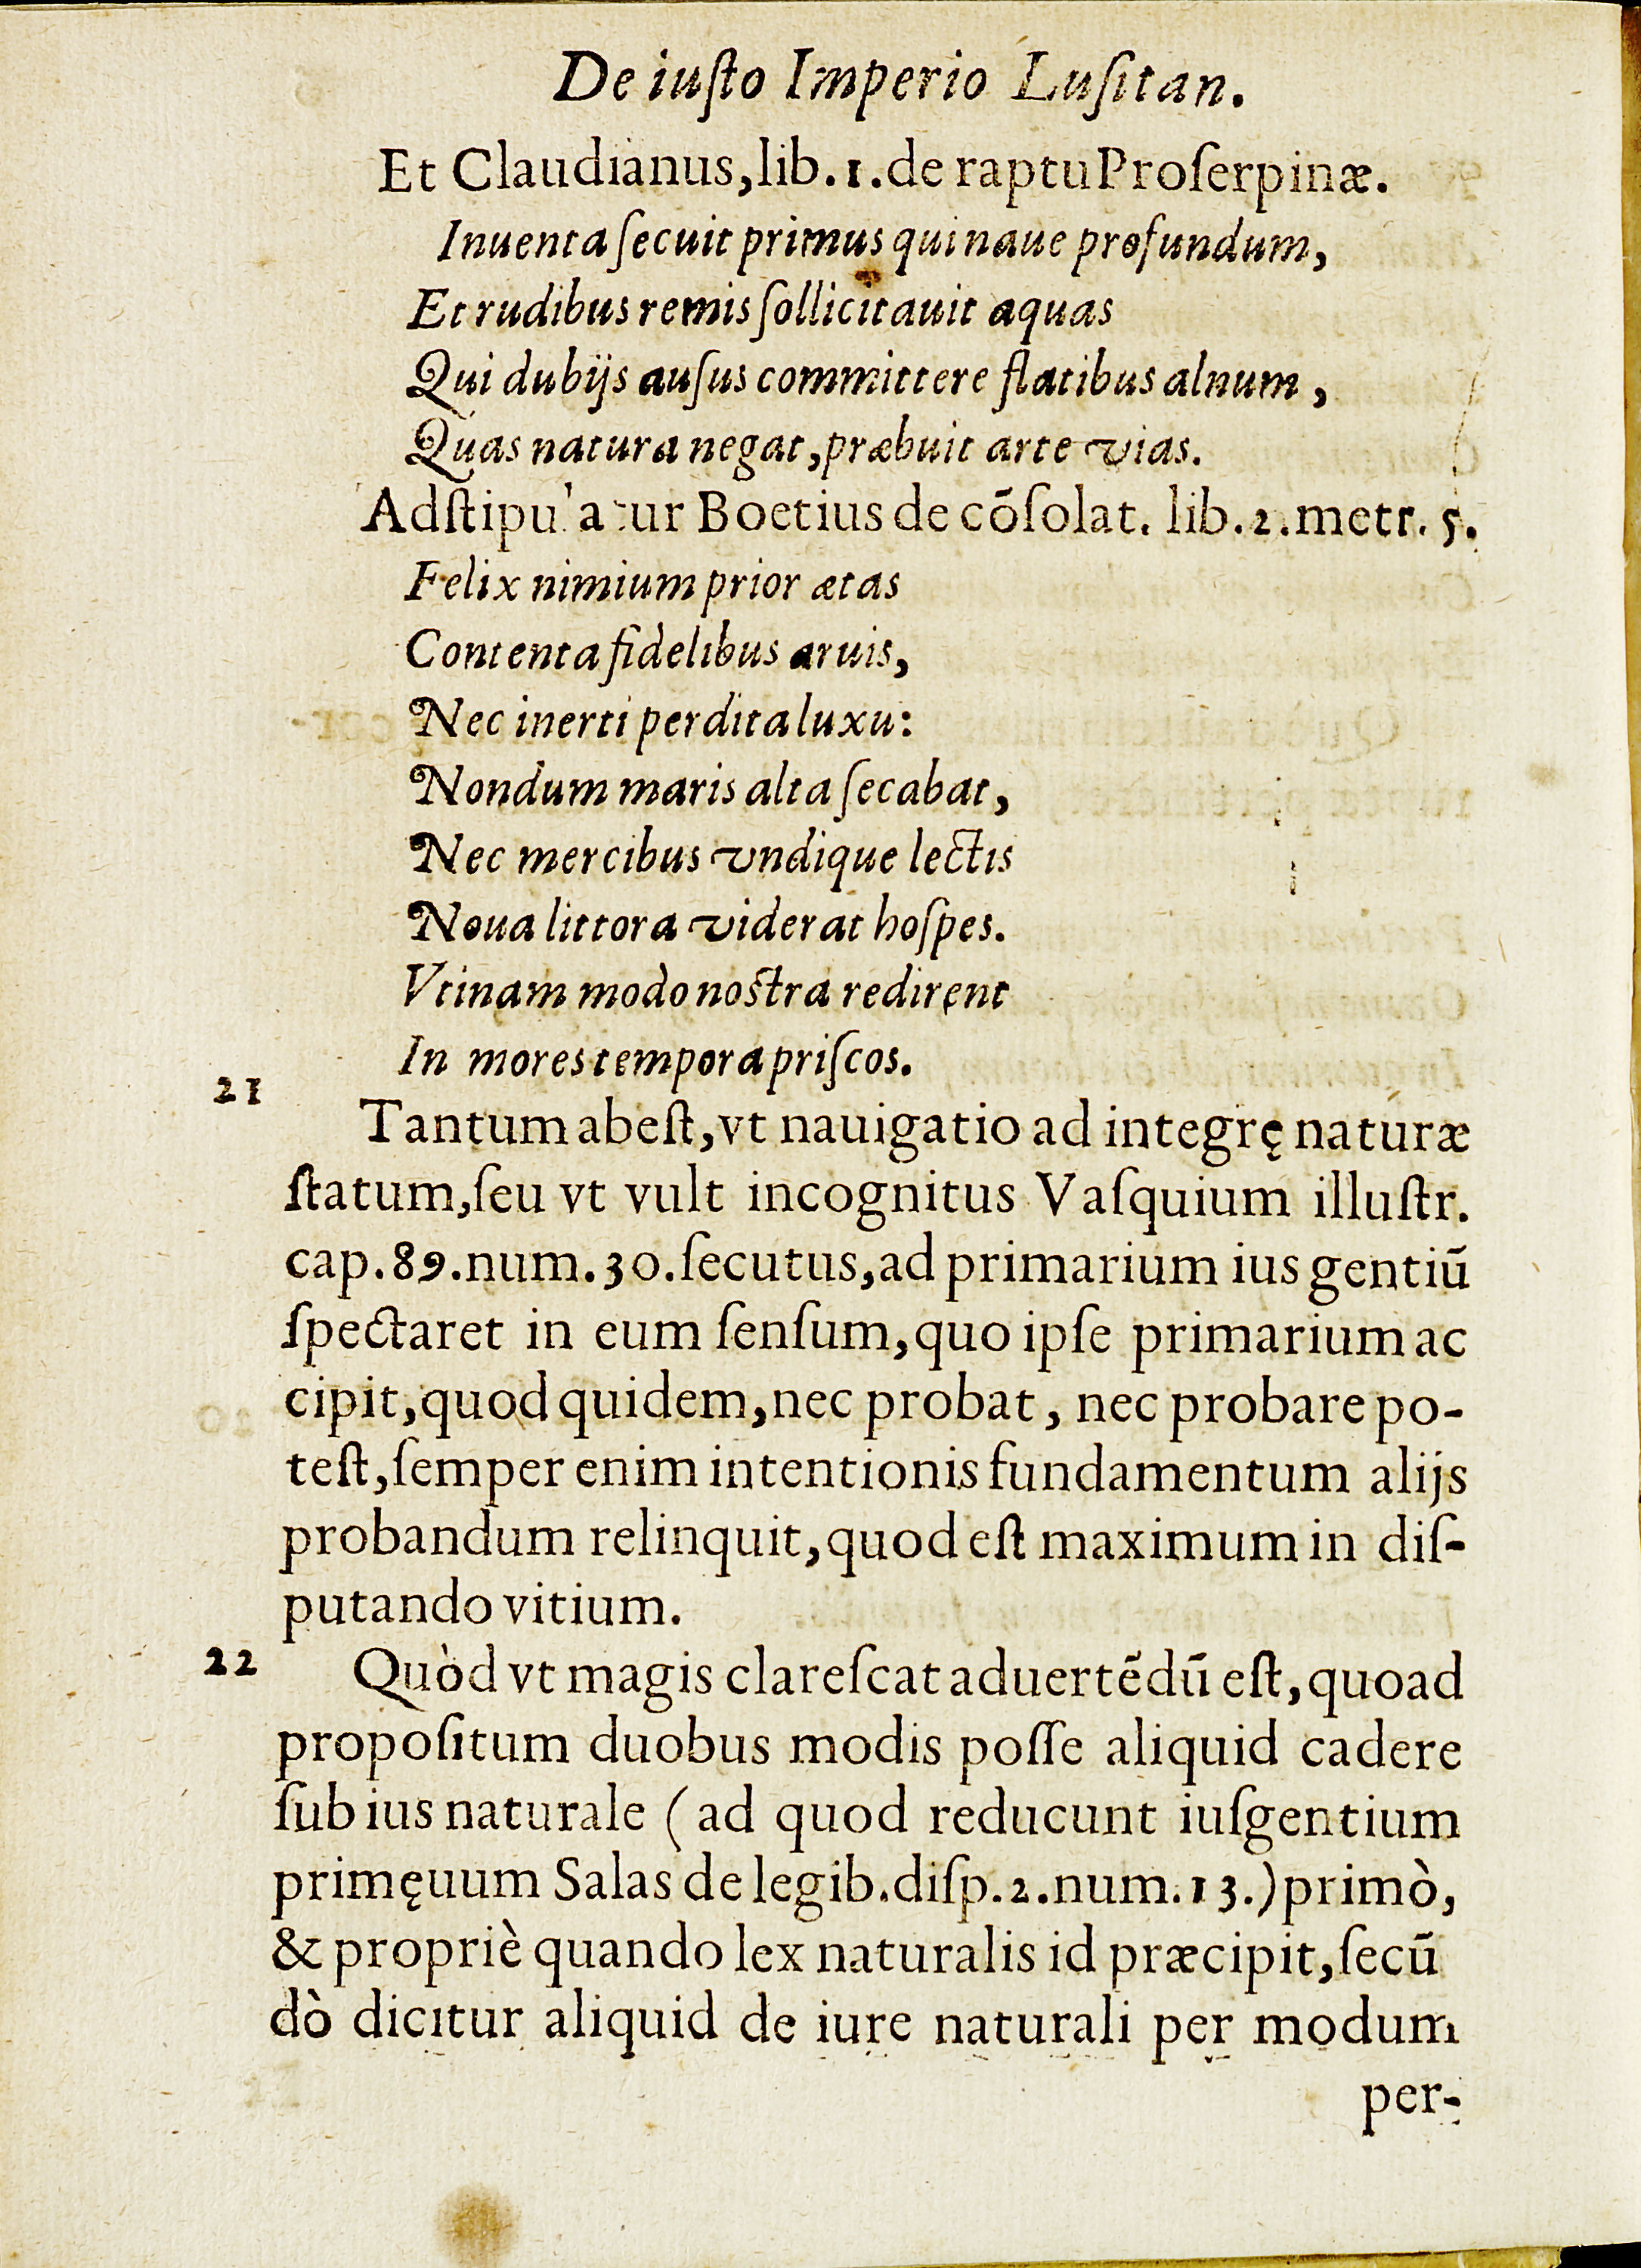 De iuſto Imperio Luſitan.
Et Claudianus, lib. 1. de raptu Proſerpinæ.
Inuenta ſecuit primus qui naue profundum,
Et rudibus remis ſollicitauit aquas
Qui dubijs auſus committere flatibus alnum,
Quas natura negat, præbuit arte vias.
Adſtipulatur Boetius de cõſolat. lib. 2. metr. 5.
Felix nimium prior ætas
Contenta fidelibus aruis,
Nec inerti perdita luxu:
Nondum maris alta ſecabat,
Nec mercibus vndique lectis
Noua littora viderat hoſpes.
Vtinam modo noſtra redirent
In mores tempora priſcos.
21
Tantum abeſt, vt nauigatio ad integrę naturæ
ſtatum, ſeu vt vult incognitus Vaſquium illuſtr.
cap. 89. num. 30. ſecutus, ad primarium ius gentiũ
ſpectaret in eum ſenſum, quo ipſe primarium ac
cipit, quod quidem, nec probat, nec probare po-
teſt, ſemper enim intentionis fundamentum alijs
probandum relinquit, quod eſt maximum in diſ-
putando vitium.
22 Quòd vt magis clareſcat aduertẽdũ eſt, quoad
propoſitum duobus modis poſſe aliquid cadere
ſub ius naturale (ad quod reducunt iuſgentium
primęuum Salas de legib. diſp. 2. num. 13.) primò,
& propriè quando lex naturalis id præcipit, ſecũ
dò dicitur aliquid de iure naturali per modum
per-